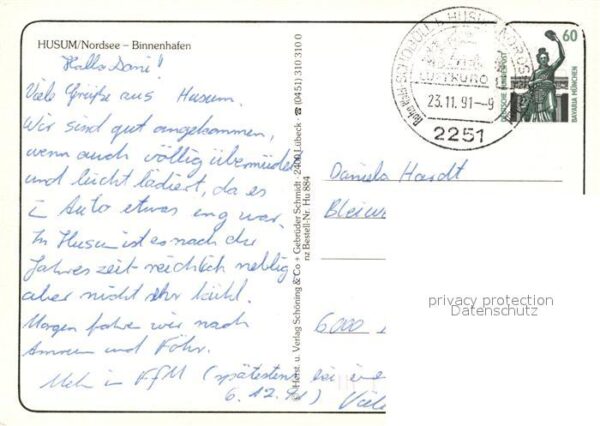 HUSUM/Nordsee – Binnenhafen
Hallo Dani!
Viele Grüße aus Husum.
Wir sind gut angekommen,
wenn auch völlig übermüdet
und leicht lädiert, da es
i. Auto etwas eng war.
In Husum ist es nach der
Jahreszeit reichlich neblig
aber nicht sehr kühl.
Morgen fahren wir nach
Amrum und Föhr.
Mehr in FfM (spätestens bei
6.12.91) Viele
© Herst. u. Verlag Schöning & Co + Gebrüder Schmidt · 2400 Lübeck · ☎ (0451) 310 310 0
nz Bestell-Nr. Hu 884
SCHOBÜLL
LUFTKURO
23.11.91-9
2251
60
DEUTSCHE BUNDESPOST
BAVARIA MÜNCHEN
Daniela Hardt
6000
privacy protection
Datenschutz